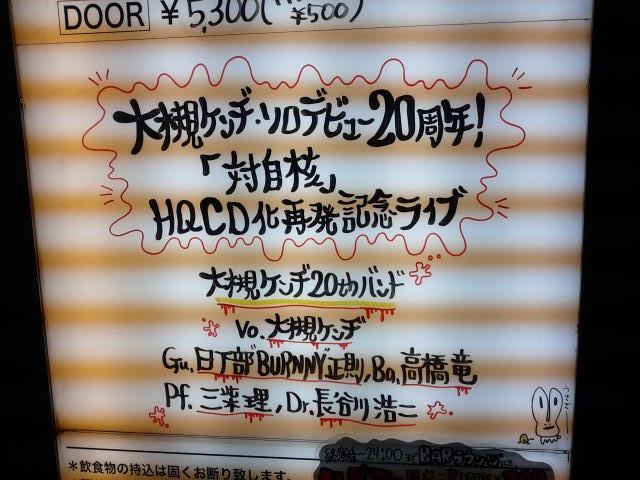 DOOR ¥5,300(
¥500)
大槻ケンヂ・ソロデビュー20周年!
「対自核」
HQCD化再発記念ライブ
大槻ケンヂ20thバンド
Vo.大槻ケンヂ
Gu.日下部"BURNNY"正則,Ba.高橋竜
Pf.三柴理,Dr.長谷川浩二
*飲食物の持込は固くお断り致します。
終演後~24:00まで BAR